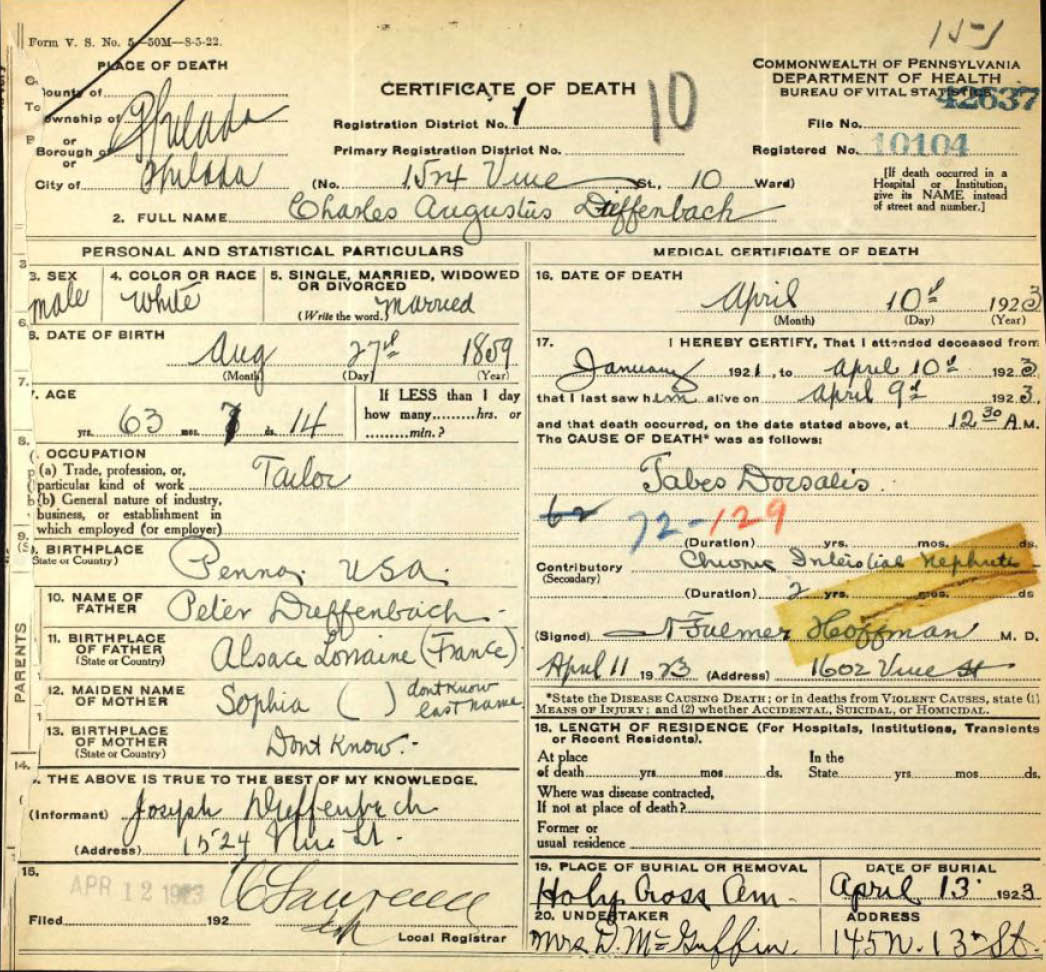 Form V. S. No. 5—50M—8-5-22.
151
PLACE OF DEATH
County of
Township of Philada
or
Borough of
or
City of Philada
CERTIFICATE OF DEATH
10
Registration District No. 1
Primary Registration District No.
(No. 1524 Vine St., 10 Ward)
COMMONWEALTH OF PENNSYLVANIA
DEPARTMENT OF HEALTH
BUREAU OF VITAL STATISTICS
42637
File No.
Registered No. 10104
[If death occurred in a
Hospital or Institution,
give its NAME instead
of street and number.]
2. FULL NAME Charles Augustus Dieffenbach
PERSONAL AND STATISTICAL PARTICULARS
3. SEX
male
4. COLOR OR RACE
White
5. SINGLE, MARRIED, WIDOWED
OR DIVORCED
(Write the word.) Married
6. DATE OF BIRTH
Aug 27th 1859
(Month) (Day) (Year)
7. AGE
63 yrs. 7 mos. 14 ds.
If LESS than 1 day
how many........hrs. or
.........min.?
OCCUPATION
(a) Trade, profession, or,
particular kind of work Tailor
(b) General nature of industry,
business, or establishment in
which employed (or employer)
9. BIRTHPLACE
(State or Country) Penna. USA.
PARENTS
10. NAME OF
FATHER Peter Dieffenbach
11. BIRTHPLACE
OF FATHER
(State or Country) Alsace Lorraine (France)
12. MAIDEN NAME
OF MOTHER Sophia ( ) dont know
last name
13. BIRTHPLACE
OF MOTHER
(State or Country) Dont Know.
14.
THE ABOVE IS TRUE TO THE BEST OF MY KNOWLEDGE.
(Informant) Joseph Dieffenbach
(Address) 1524 Vine St.
15.
APR 12 1923
Filed 192
Local Registrar
MEDICAL CERTIFICATE OF DEATH
16. DATE OF DEATH
April 10th 1923
(Month) (Day) (Year)
17. I HEREBY CERTIFY, That I attended deceased from
January 1921, to April 10th 1923
that I last saw him alive on April 9th 1923,
and that death occurred, on the date stated above, at 12 30 A.M.
The CAUSE OF DEATH* was as follows:
Tabes Dorsalis.
62 72-129
(Duration) yrs. mos. ds.
Contributory Chronic Interstitial Nephritis
(Secondary)
(Duration) 2 yrs. mos. ds
(Signed) Fulmer Hoffman M. D.
April 11 1923 (Address) 1602 Vine St
*State the DISEASE CAUSING DEATH; or in deaths from VIOLENT CAUSES, state (1)
MEANS OF INJURY; and (2) whether ACCIDENTAL, SUICIDAL, or HOMICIDAL.
18. LENGTH OF RESIDENCE (For Hospitals, Institutions, Transients
or Recent Residents).
At place
of death yrs mos ds.
In the
State yrs mos ds.
Where was disease contracted,
If not at place of death?
Former or
usual residence
19. PLACE OF BURIAL OR REMOVAL
Holy Cross Cem.
DATE OF BURIAL
April 13. 1923
20. UNDERTAKER
Mrs D. McGuffin.
ADDRESS
145 N. 13th St.